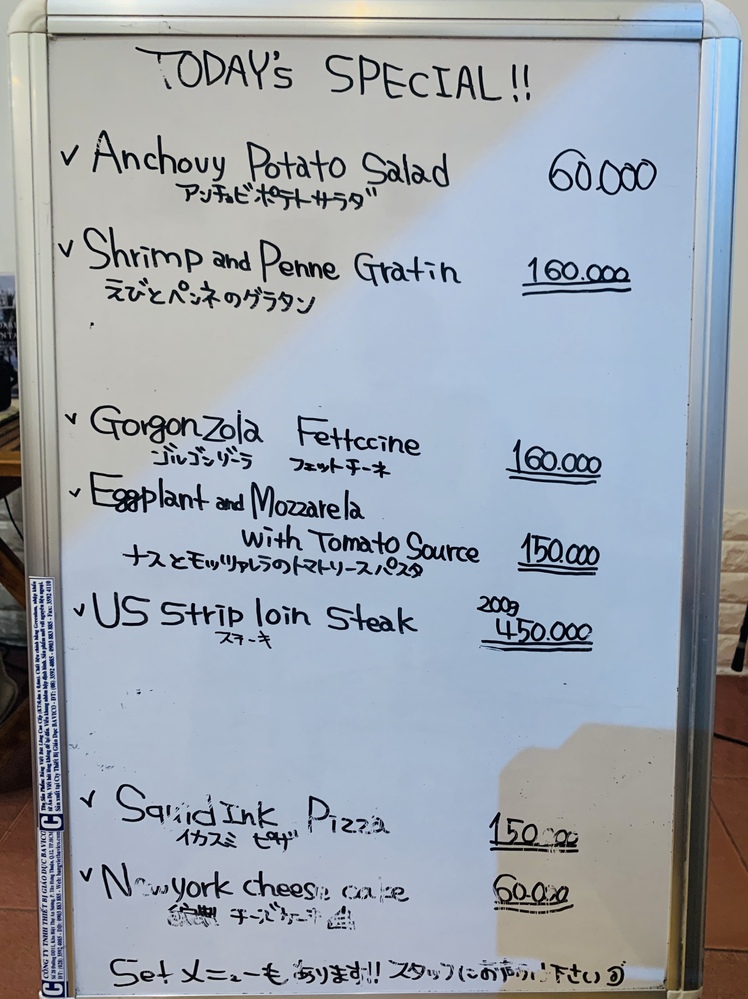 TODAY's SPECIAL!!
✓ Anchovy Potato Salad 60.000
アンチョビポテトサラダ
✓ Shrimp and Penne Gratin 160.000
えびとペンネのグラタン
✓ Gorgonzola Fettccine 160.000
ゴルゴンゾーラ フェットチーネ
✓ Eggplant and Mozzarela
with Tomato Source 150.000
ナスとモッツァレラのトマトソースパスタ
200g
✓ US Strip loin Steak 450.000
ステーキ
✓ Squid Ink Pizza 150.000
イカスミ ピザ
✓ Newyork cheese cake 60.000
チーズケーキ
Set メニューも あります!! スタッフに 下さい
CÔNG TY TNHH THIẾT BỊ GIÁO DỤC BAVICO